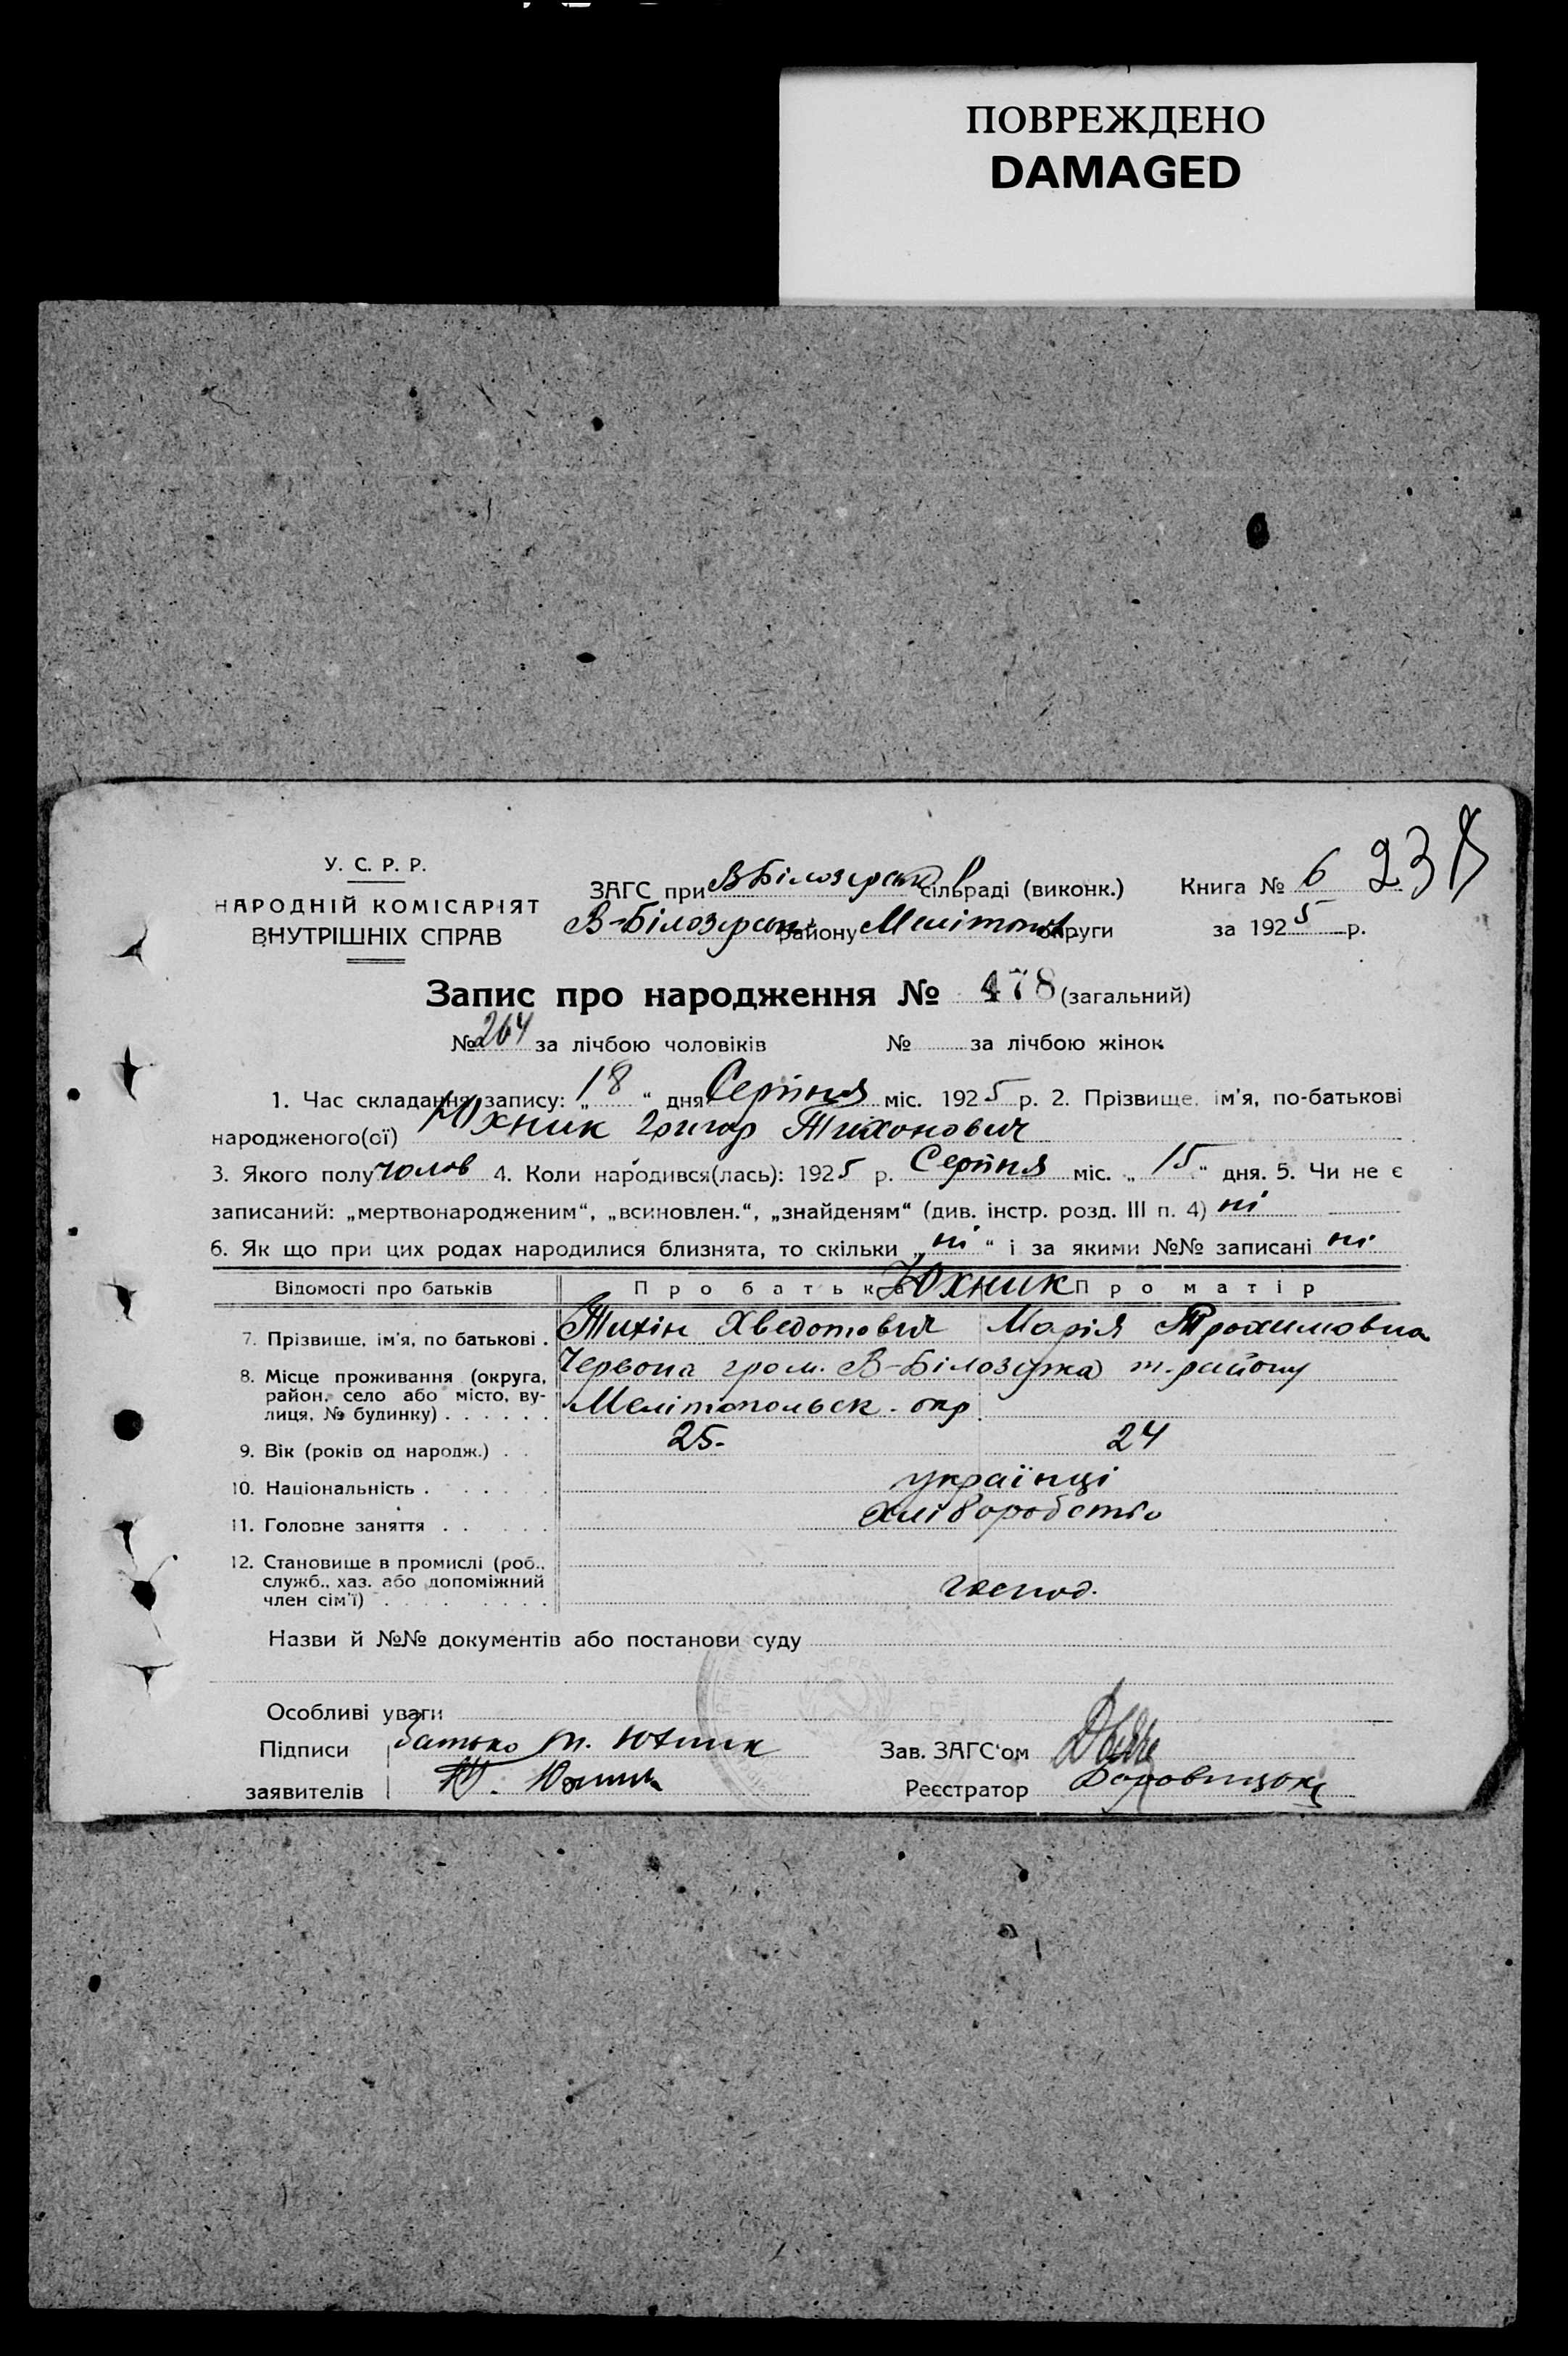 ПОВРЕЖДЕНО
DAMAGED
У. С. Р. Р.
НАРОДНІЙ КОМІСАРІЯТ
ВНУТРІШНІХ СПРАВ
ЗАГС при В Білозерськ сільраді (виконк.)
В-Білозерськ. району Мелітоп. округи
Книга № 6 23
за 1925 р.
Запис про народження № 478 (загальний)
№ 264 за лічбою чоловіків № за лічбою жінок
1. Час складання запису: „18“ дня Серпня міс. 1925 р. 2. Прізвище, ім'я, по-батькові
народженого(ої) Юхник Григор Тихонович
3. Якого полу чолов 4. Коли народився(лась): 1925 р. Серпня міс. „15“ дня. 5. Чи не є
записаний: „мертвонародженим“, „всиновлен.“, „знайденям“ (див. інстр. розд. III п. 4) ні
6. Як що при цих родах народилися близнята, то скільки „ні“ і за якими №№ записані ні
Відомості про батьків Про батька Юхник Про матір
7. Прізвище, ім'я, по батькові . Тихін Хведотович Марія Трохимовна
8. Місце проживання (округа, Червона гром. В-Білозірка т. району
район, село або місто, ву-
лиця, № будинку) . . . . . . Мелітопольськ. окр.
9. Вік (років од народж.) . . 25. 24
10. Національність . . . . . . українці
11. Головне заняття . . . . . хліборобство
12. Становище в промислі (роб.,
служб., хаз. або допоміжний
член сім'ї) . . . . . . . . . господ.
Назви й №№ документів або постанови суду
Особливі уваги
Підписи батько Т. Юхник Зав. ЗАГС'ом
заявителів Т. Юхник Реєстратор